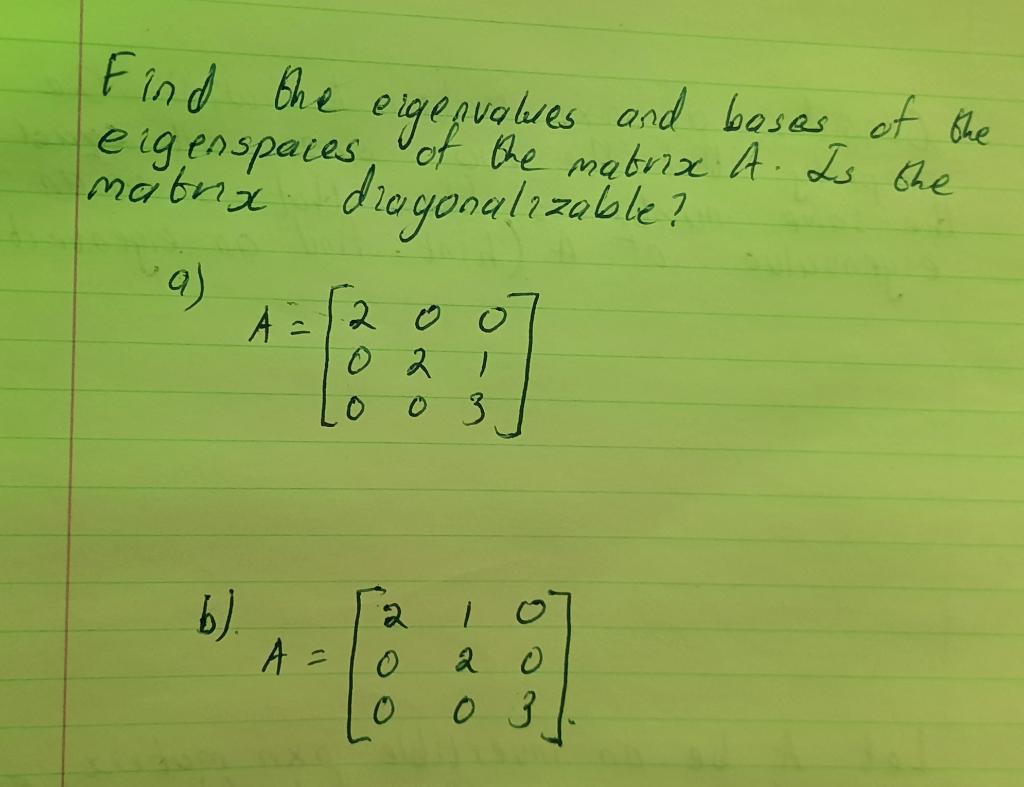 Find the eigenvalues and bases of the
eigenspaces of the matrix A. Is the
matrix diagonalizable?
a)
A = [2 0 0
0 2 1
0 0 3]
b).
A = [2 1 0
0 2 0
0 0 3].